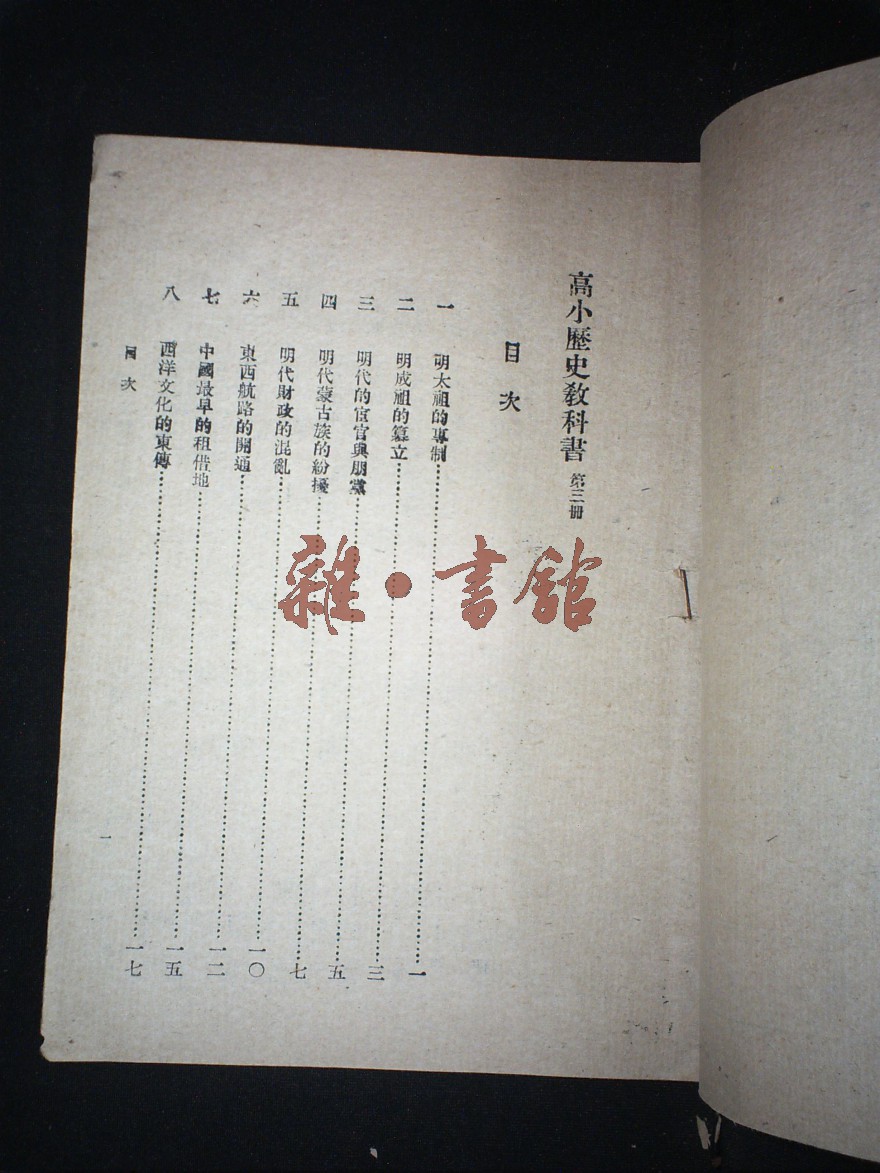 高小歷史教科書 第三冊
目次
一 明太祖的專制 一
二 明成祖的篡立 三
三 明代的宦官與朋黨 五
四 明代蒙古族的紛擾 七
五 明代財政的混亂 一〇
六 東西航路的開通 一二
七 中國最早的租借地 一五
八 西洋文化的東傳 一七
目次
一
雜·書館